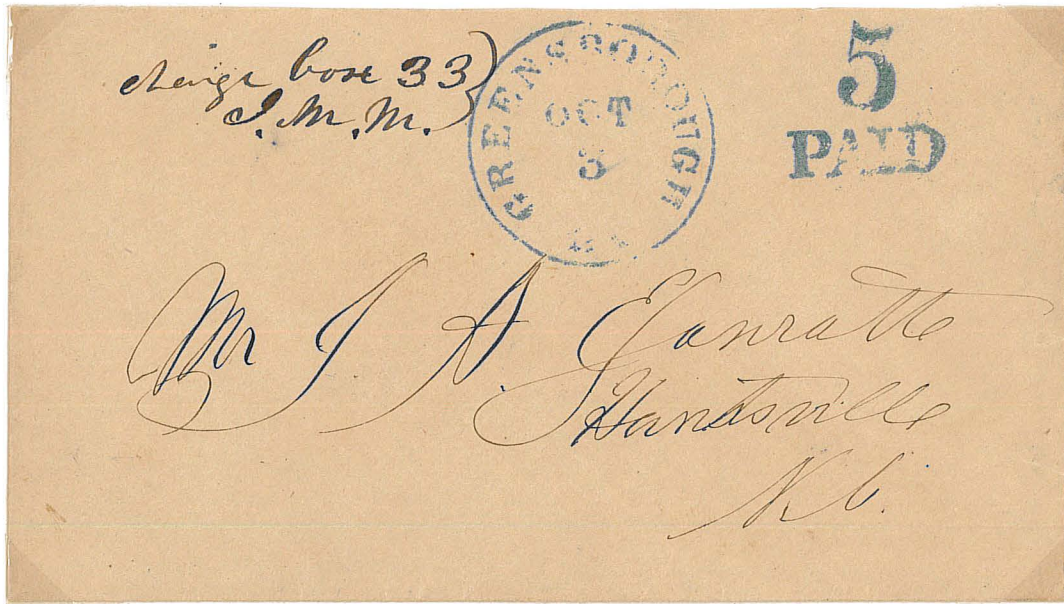 charge box 33
J. M. M.
GREENSBOROUGH
OCT
3
5
PAID
Mr J A.
Huntsville
N. C.